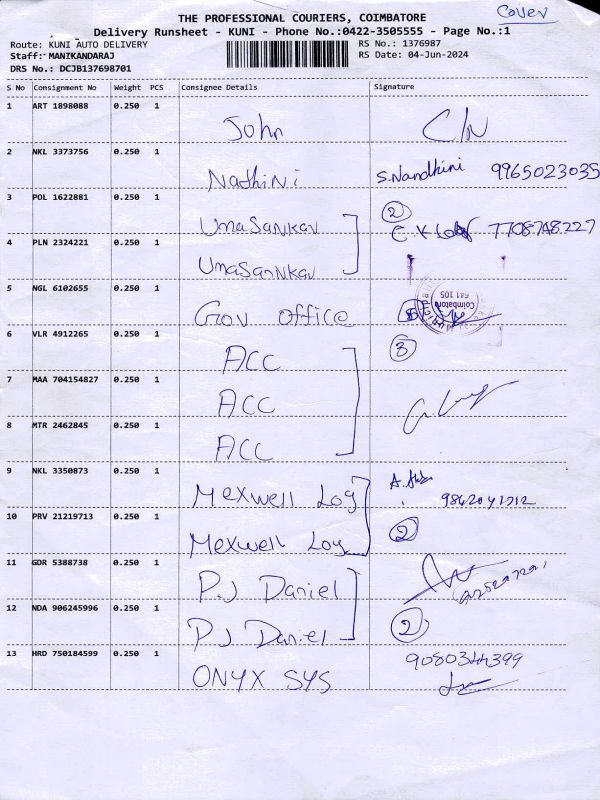 Cover
THE PROFESSIONAL COURIERS, COIMBATORE
Delivery Runsheet - KUNI - Phone No.:0422-3505555 - Page No.:1
Route: KUNI AUTO DELIVERY RS No.: 1376987
Staff: MANIKANDARAJ RS Date: 04-Jun-2024
DRS No.: DCJB137698701
S No Consignment No Weight PCS Consignee Details Signature
1 ART 1898088 0.250 1 John
2 NKL 3373756 0.250 1 Nathini S.Nandhini 9965023035
3 POL 1622881 0.250 1 UmaSankar 2
4 PLN 2324221 0.250 1 UmaSankar
5 NGL 6102655 0.250 1 Gov office Coimbatore 641 105
6 VLR 4912265 0.250 1 ACC 3
7 MAA 704154827 0.250 1 ACC
8 MTR 2462845 0.250 1 ACC
9 NKL 3350873 0.250 1 Mexwell Log 9862041712
10 PRV 21219713 0.250 1 Mexwell Log 2
11 GDR 5388738 0.250 1 P.J Daniel
12 NDA 906245996 0.250 1 P J Daniel 2
13 HRD 750184599 0.250 1 ONYX SYS 9080344399